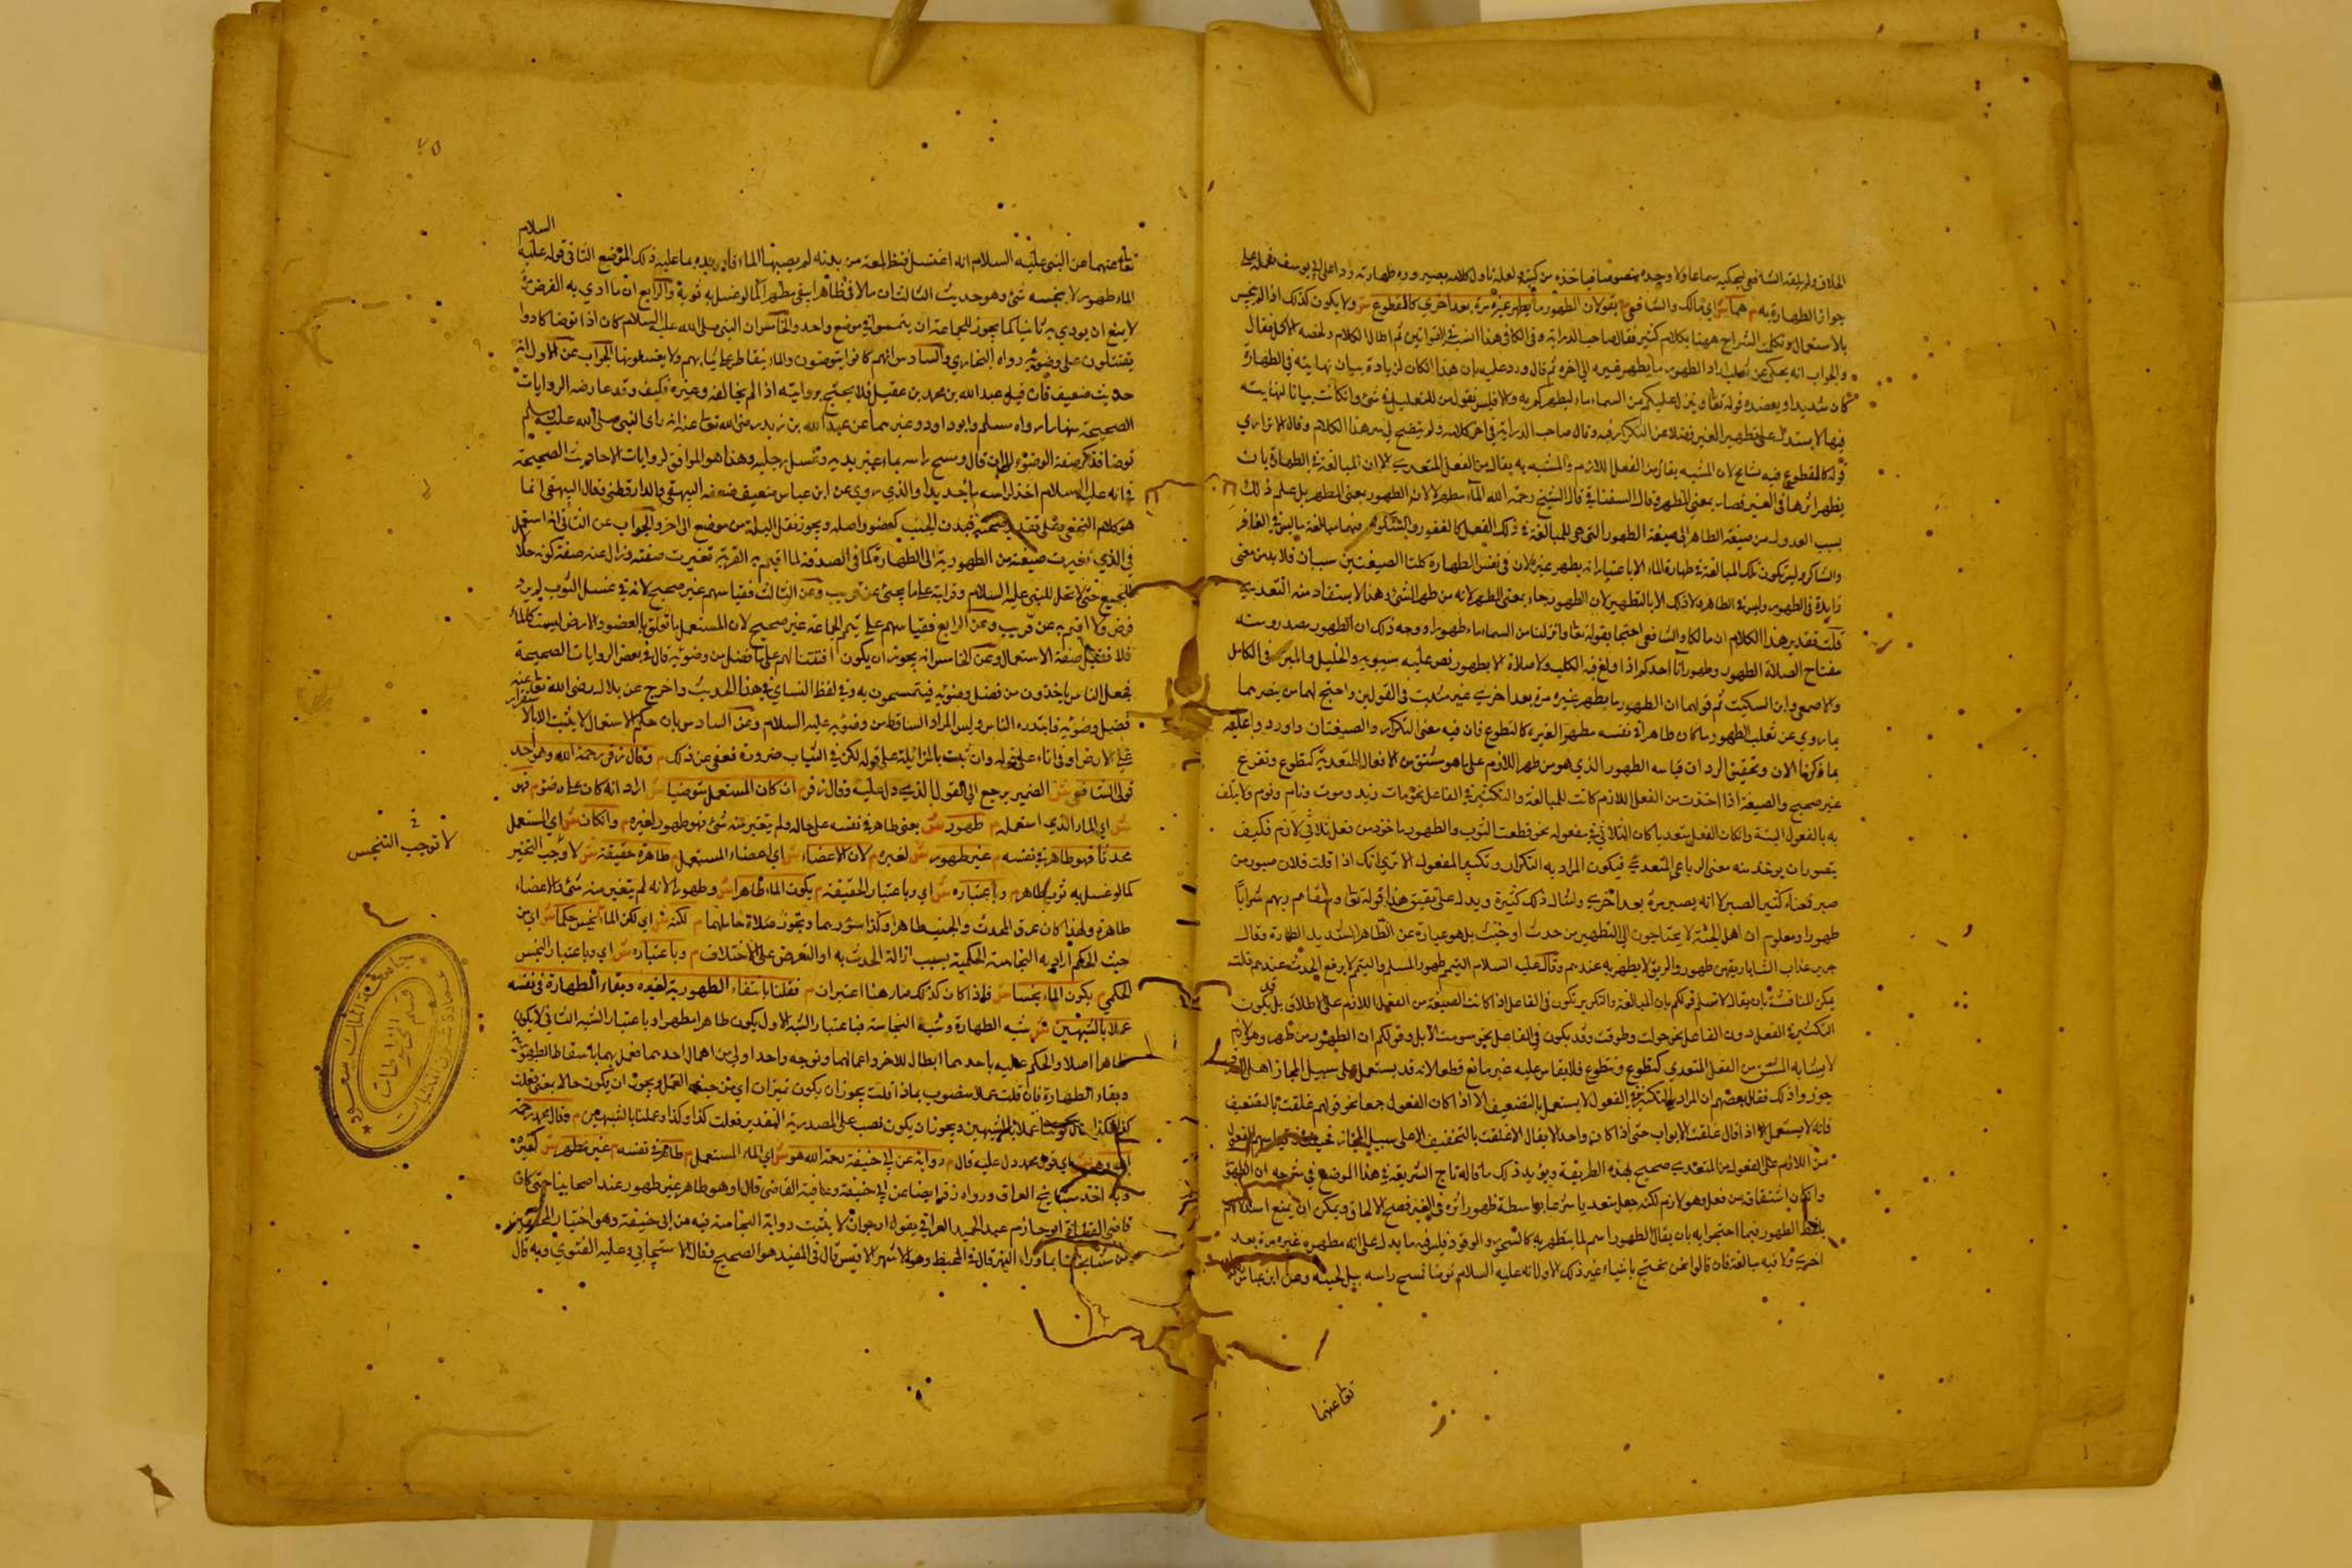 جواز الطهارة به م هما ش اي مالك والشافعي م يقولان الطهور ما يطهر غيره مرة بعد اخري كالقطوع ش ولا يكون كذلك اذا لم ينجس
بالاستعمال وتكلمت الشراح ههنا بكلام كثير فقال صاحب الدراية وفي الكافي هذا
والجواب انه يحكي عن ثعلب اراد الطهور ما يطهر غيره الي اخره ثم قال ورد عليه بان هذا ان كان لزيادة بيان نهايته في الطهارة
كان سديدا ويعضده قوله تعالى وينزل عليكم من السماء ماء ليطهركم به والا فليس فعول من التفعيل في شئ وانكانت بيانا لنهايته
فيها لا يستدل على تطهير الغير فضلا عن التكرار فيه وقال صاحب الدراية في اخر كلامه ولم يتضح لي سر هذا الكلام وقال الاترازي
قوله كالقطوع فيه تسامح لان المشبه يقال من الفعل اللازم والمشبه به يقال من الفعل المتعدي الا ان المبالغة في الطهارة بان
يظهر اثرها في الغير فصار بمعني المطهر وقال السغناقي قال الشيخ رحمه الله الماء مطهر لا لان الطهور بمعنى المطهر بل علم ذلك
بسبب العدول من صيغة الطاهر الى صيغة الطهور التي هي للمبالغة في ذلك الفعل كالغفور والشكور فيهما مبالغة ما ليس في الغافر
والشاكر وليس تكون تلك المبالغة في طهارة الماء الا باعتبار انه يطهر غيره لان في نفس الطهارة كلتا الصيغتين سيان فلا بد من معنى
زايد في الطهور وليس في الطاهر ولا ذلك الا بالتطهير لان الطهور جاء بمعنى المطهر لانه من طهر الشئ وهذا لا يستفاد منه التعدي
قلت تقدير هذا الكلام ان مالكا والشافعي احتجا بقوله تعالى وانزلنا من السماء ماء طهورا ووجه ذلك ان الطهور مصدر ومنه
مفتاح الصلاة الطهور وطهور اناء احدكم اذا ولغ فيه الكلب ولا صلاة الا بطهور نص عليه سيبويه والخليل والمبرد في الكامل
والاصمعي وابن السكيت ثم قولهما ان الطهور ما يطهر غيره مرة بعد اخري غير مثبت في القولين واحتج لهما من ينصرهما
بما روي عن ثعلب الطهور ما كان طاهرا في نفسه مطهرا لغيره كالقطوع فان فيه معنى التكرار والصيغتان
بما ذكرنا الان وتحقيق الرد ان قياسه الطهور الذي هو من طهر اللازم على ما هو مشتق من الافعال المتعدية كقطوع
غير صحيح والصيغة اذا اخذت من الفعل اللازم كانت للمبالغة والتكثير في الفاعل
به بالفعول البتة وانكان الفعل متعديا كان التلاقي في مفعوله نحو قطعت الثوب والطهور ماخوذ من فعل ثلاثي لازم فكيف
يتصور ان يوخذ منه معنى الرباعي المتعدي فيكون المراد به التكرار وتكثير المفعول الا تري انك اذا قلت فلان صبور من
صبر فمعناه كثير الصبر لا انه يصبر مرة بعد اخري وامثال ذلك كثيرة ويدل على تحقيق هذا قوله تعالى وسقاهم ربهم شرابا
طهورا ومعلوم ان اهل الجنة لا يحتاجون الي التطهير من حدث او خبث بل هو عبارة عن الطاهر الشديد الطهارة وقال
جرير عذاب الثنايا ريقهن طهور والريق لا يطهر به عندهم وقال عليه السلام التيمم طهور المسلم والتيمم لا يرفع الحدث عندهم قلت
يمكن المناقشة بان يقال لا نسلم قولكم بان المبالغة والتكرير تكون في الفاعل اذا كانت الصيغة من الفعل اللازم على الاطلاق بل قد يكون
التكثير في الفعل دون الفاعل نحو جولت وطوفت وقد يكون في الفاعل نحو موتت الابل وقولكم ان الطهور من طهر وهو لازم
لا يشابه المشتق من الفعل المتعدي كقطوع ومنطوع فلا يقاس عليه غير مانع قطعا لانه قد يستعمل على سبيل المجاز
جوزوا ذلك فقال بعضهم ان المراد بالتكثير في المفعول لا يستعمل بالتضعيف الا اذا كان المفعول جمعا نحو قولهم غلقت بالتضعيف
فانه لا يستعمل الا اذا قال غلقت الابواب حتى اذا كان واحدا لا يقال الا غلقت بالتخفيف الا على سبيل المجاز
من اللازم على المفعول من المتعدي صحيح بهذه الطريقة ويؤيد ذلك ما قاله تاج الشريعة في هذا الموضع في شرحه ان الطهور
وان كان اشتقاقه من فعل وهو لازم لكنه جعل متعديا شرعا بواسطة ظهور اثره في الغير فصح الالحاق ويمكن ان يمنع
بلفظ الطهور فيما احتجوا به بان يقال الطهور اسم لما يتطهر به كالسحور والوقود فليس فيه ما يدل على انه مطهر غيره مرة بعد
اخري ولا فيه مبالغة فان قالوا نحن نحتج باشياء غير ذلك الاول انه عليه السلام توضا فمسح راسه ببل لحيته وعن ابن عباس
تعالى عنهما
٧٥
السلام
تعالى عنهما عن النبي عليه السلام انه اغتسل فنظر لمعة من بدنه لم يصبها الماء بما عليه ذلك الموضع الثاني قوله عليه
الماء طهور لا ينجسه شئ وهو حديث الثالث ان ما لاقى طاهرا يبقى مطهرا كما لو غسل به ثوبه والرابع ان ما ادي به الفرض مرة
لا يمنع ان يودي به ثانيا كما يجوز للجماعة ان يتيمموا في موضع واحد والخامس ان النبي صلى الله عليه السلام كان اذا توضا كادوا
يقتتلون على وضوئه رواه البخاري والسادس انهم كانوا يتوضون والماء يتقاطر على ثيابهم ولا يغسلونها الجواب عن الاول انه
حديث ضعيف فان فيه عبد الله بن محمد بن عقيل فلا يحتج بروايته اذا لم يخالفه وغيره فكيف وقد عارضه الروايات
الصحيحة منها ما رواه مسلم وابو داود وغيرهما عن عبد الله بن زيد رضي الله تعالى عنه انه راي النبي صلى الله عليه وسلم
توضا فذكر صفة الوضوء الي ان قال ومسح راسه بماء غير يديه وغسل رجليه وهذا هو الموافق لروايات الاحاديث الصحيحة
في انه عليه السلام اخذ لراسه ماء جديدا والذي روي عن ابن عباس ضعيف ضعفه البيهقي والدارقطني وقال البيهقي انما
هو كلام النخعي وعلى تقدير صحته فبدن الجنب كعضو واحد ويجوز نقل البلة من موضع الى اخر والجواب عن الثاني انه استعمل
في الذي تغيرت صفته من الطهورية الي الطهارة كما في الصدقة لما اقيم به القربة تغيرت صفته وزال عنه صفة كونه حلالا
للجميع حتى لا تحل للنبي عليه السلام وقرابته على ما يجئ عن قريب وعن الثالث فقياسهم غير صحيح لانه في غسل الثوب لم يرد
فرض ولا اقيم به عن قريب وعن الرابع فقياسهم على تيمم الجماعة غير صحيح لان المستعمل ما تعلق بالعضو والارض ليست كالماء
فلا صفة الاستعمال وعن الخامس انه يجوز ان يكون اقتتالهم على ما فضل من وضوئه قال في بعض الروايات الصحيحة
فجعل الناس ياخذون من فضل وضوئه فيتمسحون به وفي لفظ النسائي في هذا الحديث واخرج عن بلال رضي الله تعالى عنه
فضل وضوئه فابتدره الناس وليس المراد الساقط من وضوئه عليه السلام وعن السادس بان حكم الاستعمال لا يثبت الا بالاستقرار
على الارض او في اناء على قوله وان ثبت بالمزايلة على قوله لكن في الثياب ضرورة فعفي عن ذلك م وقال زفر رحمه الله وهو احد
قولي الشافعي ش الضمير يرجع الي القول الذي دل عليه وقال زفر م ان كان المستعمل متوضيا ش اراد انه كان على وضوء م فهو
ش اي الماء الذي استعمله م طهور ش يعني طاهر في نفسه على حاله ولم يتغير منه شئ فهو طهور لغيره م وان كان ش اي المستعمل
محدثا فهو طاهر في نفسه م غير طهور ش لغيره م لان الاعضاء ش اي اعضاء المستعمل م طاهرة حقيقة ش لا توجب التغير
كما لو غسل به ثوب طاهر م وباعتباره ش اي وباعتبار الحقيقة م يكون الماء طاهرا ش وطهورا لانه لم يتغير منه شئ والاعضاء
طاهرة ولهذا كان عرق المحدث والجنب طاهرا وكذا سؤرهما وتجوز صلاة حاملهما م لكنه ش اي لكن الماء نجس حكما ش اي من
حيث الحكم اراد به النجاسة الحكمية بسبب ازالة الحدث به او التعرض على الاختلاف م وباعتباره ش اي وباعتبار النجس
الحكمي م يكون الماء نجسا ش فاذا كان كذلك صار هنا اعتباران م فقلنا بانتفاء الطهورية لغيره وبقاء الطهارة في نفسه
عملا بالشبهين ش شبه الطهارة وشبه النجاسة فباعتبار الشبه الاول يكون طاهرا مطهرا وباعتبار الشبه الثاني لا يكون
طاهرا اصلا والحكم عليه باحدهما ابطال للاخر واعمالهما ولو بوجه واحد اولي من اهمال احدهما فعمل بهما باسقاط الطهورية
وبقاء الطهارة فان قلت عملا منصوب بماذا قلت يجوز ان يكون تمييزا اي من جهة العمل ويجوز ان يكون حالا بمعنى فعلت
كذا عملا بالشبهين ويجوز ان يكون نصب على المصدرية التقدير فعلت كذا وكذا وعملنا بالشبهين م وقال محمد رحمه
الله وهو ش اي قول محمد دل عليه قال م رواية عن ابي حنيفة رحمه الله هو ش اي الماء المستعمل م طاهر في نفسه م غير مطهر ش لغيره
وبه اخذ مشايخ العراق ورواه زفر ايضا عن ابي حنيفة وعافية القاضي قال او هو طاهر غير طهور عند اصحابنا حتى كان
قاضي القضاة ابو حازم عبد الحميد العراقي يقول ارجو ان لا يثبت رواية النجاسة فيه عن ابي حنيفة وهو اختيار المحققين
من مشايخنا بما وراء النهر قال في المحيط وهو الاشهر الاقيس قال في المفيد هو الصحيح وقال الاسبيجابي وعليه الفتوي وبه قال
لا توجب التنجس
جامعة الملك سعود
قسم المخطوطات
عمادة شؤون المكتبات